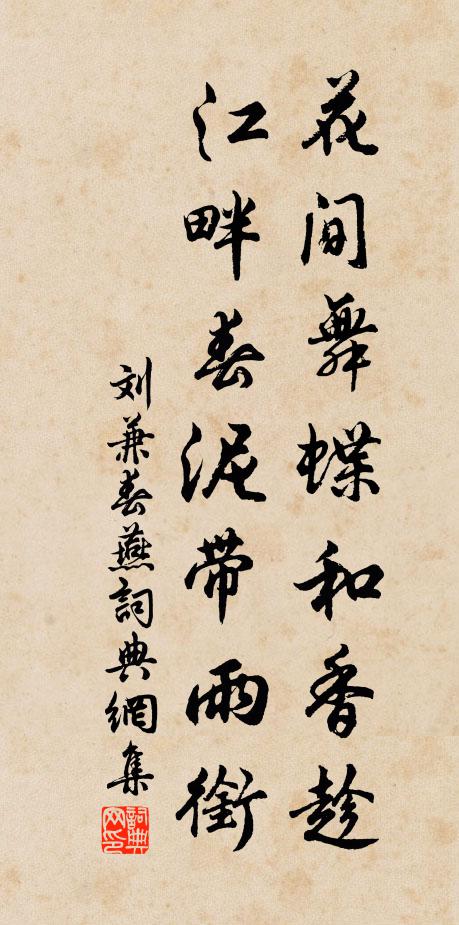 花间舞蝶和香趁
江畔春泥带雨衔
刘兼春燕词典網集
詞典网印